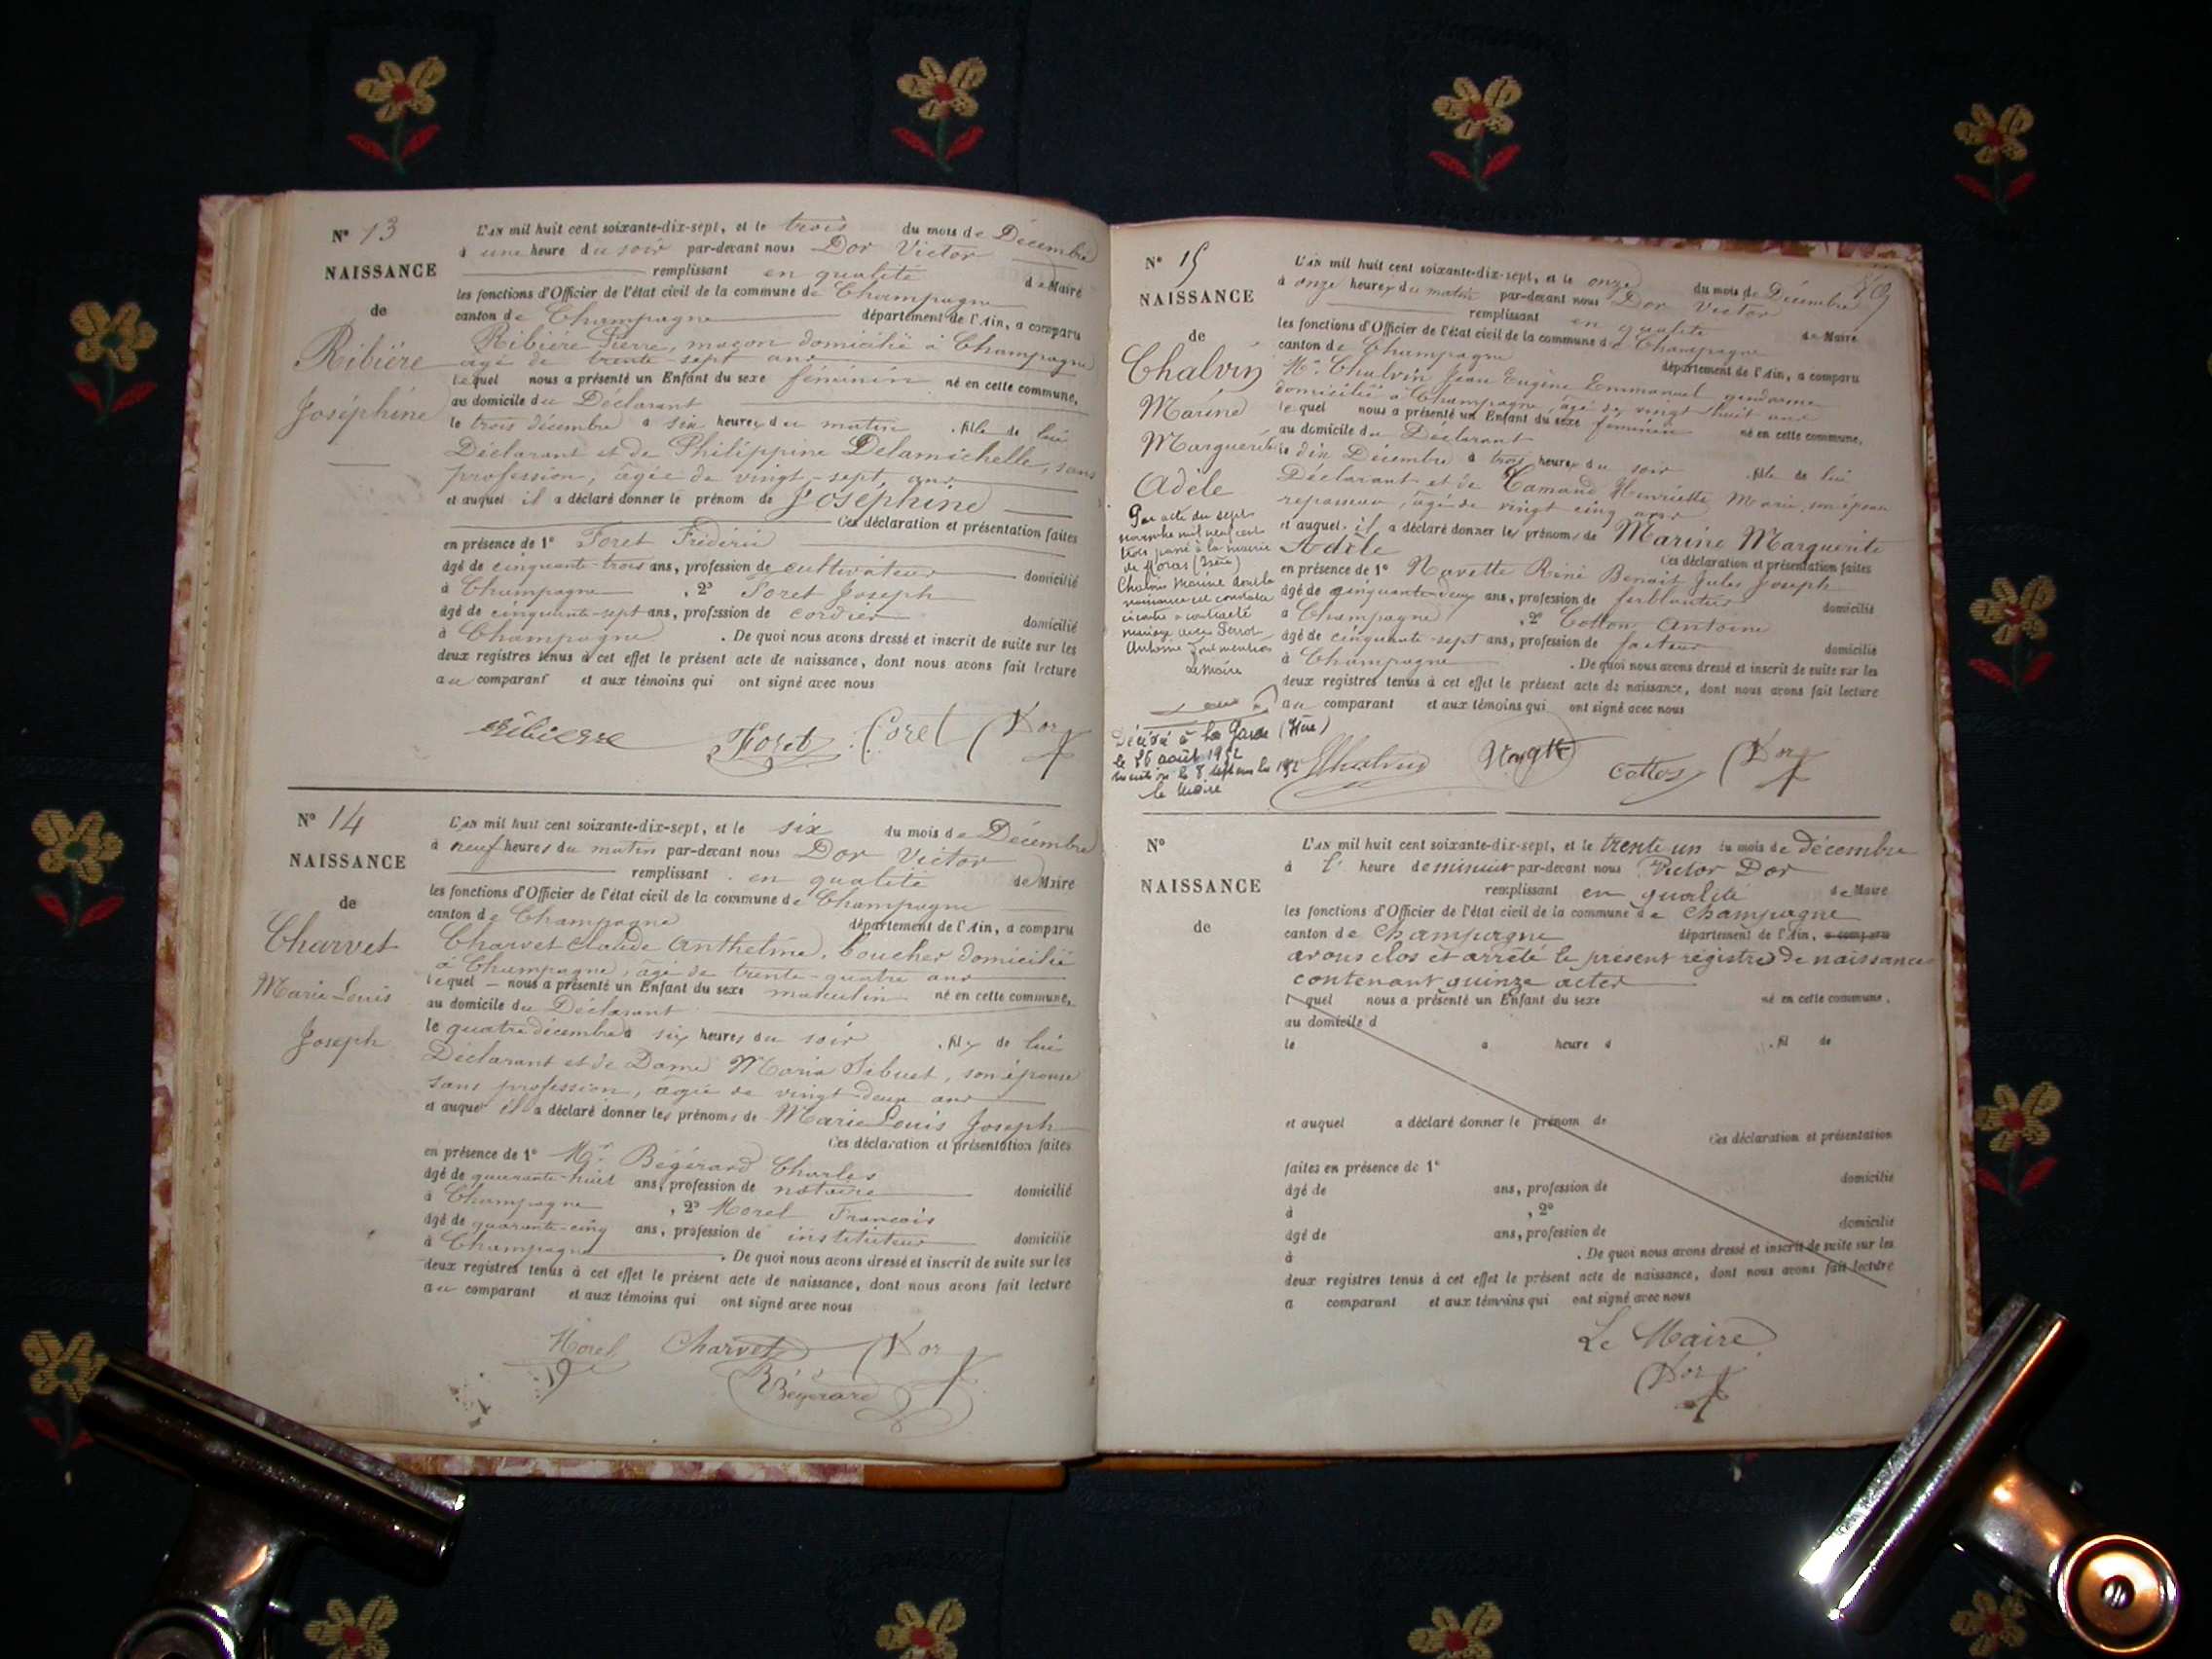 N° 13
NAISSANCE
de
Ribière
Joséphine
L'an mil huit cent soixante-dix-sept, et le trois du mois de Décembre
à une heure du soir par-devant nous Dor Victor
remplissant en qualité de Maire
les fonctions d'Officier de l'état civil de la commune de Champagne
canton de Champagne département de l'Ain, a comparu
Ribière Pierre, maçon domicilié à Champagne
âgé de trente sept ans
lequel nous a présenté un Enfant du sexe féminin né en cette commune,
au domicile du Déclarant
le trois décembre à six heures du matin, fille de lui
Déclarant et de Philippine Delamichelle, sans
profession, âgée de vingt-sept ans
et auquel il a déclaré donner le prénom de Joséphine
Ces déclaration et présentation faites
en présence de 1° Foret Fréderic
âgé de cinquante-trois ans, profession de cultivateur domicilié
à Champagne, 2° Foret Joseph
âgé de cinquante-sept ans, profession de cordier domicilié
à Champagne. De quoi nous avons dressé et inscrit de suite sur les
deux registres tenus à cet effet le présent acte de naissance, dont nous avons fait lecture
au comparant et aux témoins qui ont signé avec nous
Foret Foret Dor
N° 14
NAISSANCE
de
Charvet
Marie Louis
Joseph
L'an mil huit cent soixante-dix-sept, et le six du mois de Décembre
à neuf heures du matin par-devant nous Dor Victor
remplissant en qualité de Maire
les fonctions d'Officier de l'état civil de la commune de Champagne
canton de Champagne département de l'Ain, a comparu
Charvet Claude Anthelme, boucher domicilié
à Champagne, âgé de trente-quatre ans
lequel nous a présenté un Enfant du sexe masculin né en cette commune,
au domicile du Déclarant
le quatre décembre à six heures du soir, fils de lui
Déclarant et de Dame Maria Sibuet, son épouse
sans profession, âgée de vingt-deux ans
et auquel il a déclaré donner les prénoms de Marie Louis Joseph
Ces déclaration et présentation faites
en présence de 1° Mr Bégérard Charles
âgé de quarante-huit ans, profession de notaire domicilié
à Champagne, 2° Morel François
âgé de quarante-cinq ans, profession de instituteur domicilié
à Champagne. De quoi nous avons dressé et inscrit de suite sur les
deux registres tenus à cet effet le présent acte de naissance, dont nous avons fait lecture
au comparant et aux témoins qui ont signé avec nous
Morel Charvet Dor
Bégérard
N° 15
NAISSANCE
de
Chalvin
Marine
Marguerite
Adèle
Par acte du sept
novembre mil neuf cent
trois passé à la mairie
de Moras (Isère)
Chalvin Marine dont la
naissance est constatée
ci contre a contracté
mariage avec Perrot
Antoine Dont mention
Le Maire
Décédée à la (Isère)
le 26 août 1952
le 8 septembre 1952
le Maire
L'an mil huit cent soixante-dix-sept, et le onze du mois de Décembre
à onze heures du matin par-devant nous Dor Victor
remplissant en qualité de Maire
les fonctions d'Officier de l'état civil de la commune de Champagne
canton de Champagne département de l'Ain, a comparu
Mr. Chalvin Jean Eugène Emmanuel gendarme
domicilié à Champagne, âgé de vingt huit ans
lequel nous a présenté un Enfant du sexe féminin né en cette commune,
au domicile du Déclarant
le dix Décembre à trois heures du soir, fille de lui
Déclarant et de Camand Henriette Marie, son épouse
repasseuse, âgée de vingt cinq ans
et auquel il a déclaré donner les prénoms de Marine Marguerite
Adèle
Ces déclaration et présentation faites
en présence de 1° Navette Réné Benoit Jules Joseph
âgé de cinquante-deux ans, profession de ferblantier domicilié
à Champagne, 2° Cotton Antoine
âgé de cinquante-sept ans, profession de facteur domicilié
à Champagne. De quoi nous avons dressé et inscrit de suite sur les
deux registres tenus à cet effet le présent acte de naissance, dont nous avons fait lecture
au comparant et aux témoins qui ont signé avec nous
Dor
N°
NAISSANCE
de
L'an mil huit cent soixante-dix-sept, et le trente un du mois de décembre
à l' heure de minuit par-devant nous Victor Dor
remplissant en qualité de Maire
les fonctions d'Officier de l'état civil de la commune de Champagne
canton de Champagne département de l'Ain, a comparu
avons clos et arrêté le présent régistre de naissances
contenant quinze actes
l quel nous a présenté un Enfant du sexe né en cette commune,
au domicile d
le à heure d, fil de
et auquel a déclaré donner le prénom de
Ces déclaration et présentation
faites en présence de 1°
âgé de ans, profession de domicilié
à , 2°
âgé de ans, profession de domicilié
à . De quoi nous avons dressé et inscrit de suite sur les
deux registres tenus à cet effet le présent acte de naissance, dont nous avons fait lecture
a comparant et aux témoins qui ont signé avec nous
Le Maire
Dor